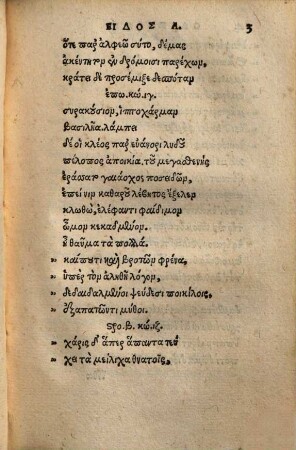 ΕΙΔΟΣ Α. 3
ὅτε παρ' ἀλφεῷ σύτο, δέμας
ἀκέντητον ἐν δρόμοισι παρέχων,
κράτει δὲ προσέμιξε δεσπόταν
ἐπω. κώ. ιγ.
συρακόσιον, ἱπποχάρμαν
βασιλῆα. λάμπει
δέ οἱ κλέος παρ' εὐάνορι λυδοῦ
πέλοπος ἀποικίᾳ, τοῦ μεγασθενὴς
ἐράσσατο γαιάοχος ποσειδῶν,
ἐπεί νιν καθαροῦ λέβητος ἔξελεν
κλωθώ, ἐλέφαντι φαίδιμον
ὦμον κεκαδμένον.
ἦ θαύματα πολλά.
" καί πού τι καὶ βροτῶν φρένα,
" ὑπὲρ τὸν ἀληθῆ λόγον,
" δεδαιδαλμένοι ψεύδεσι ποικίλοις,
" ἐξαπατῶντι μῦθοι.
στρο. β. κώ. ιζ.
" χάρις δ' ἅπερ ἅπαντα τεύ
" χει τὰ μείλιχα θνατοῖς,